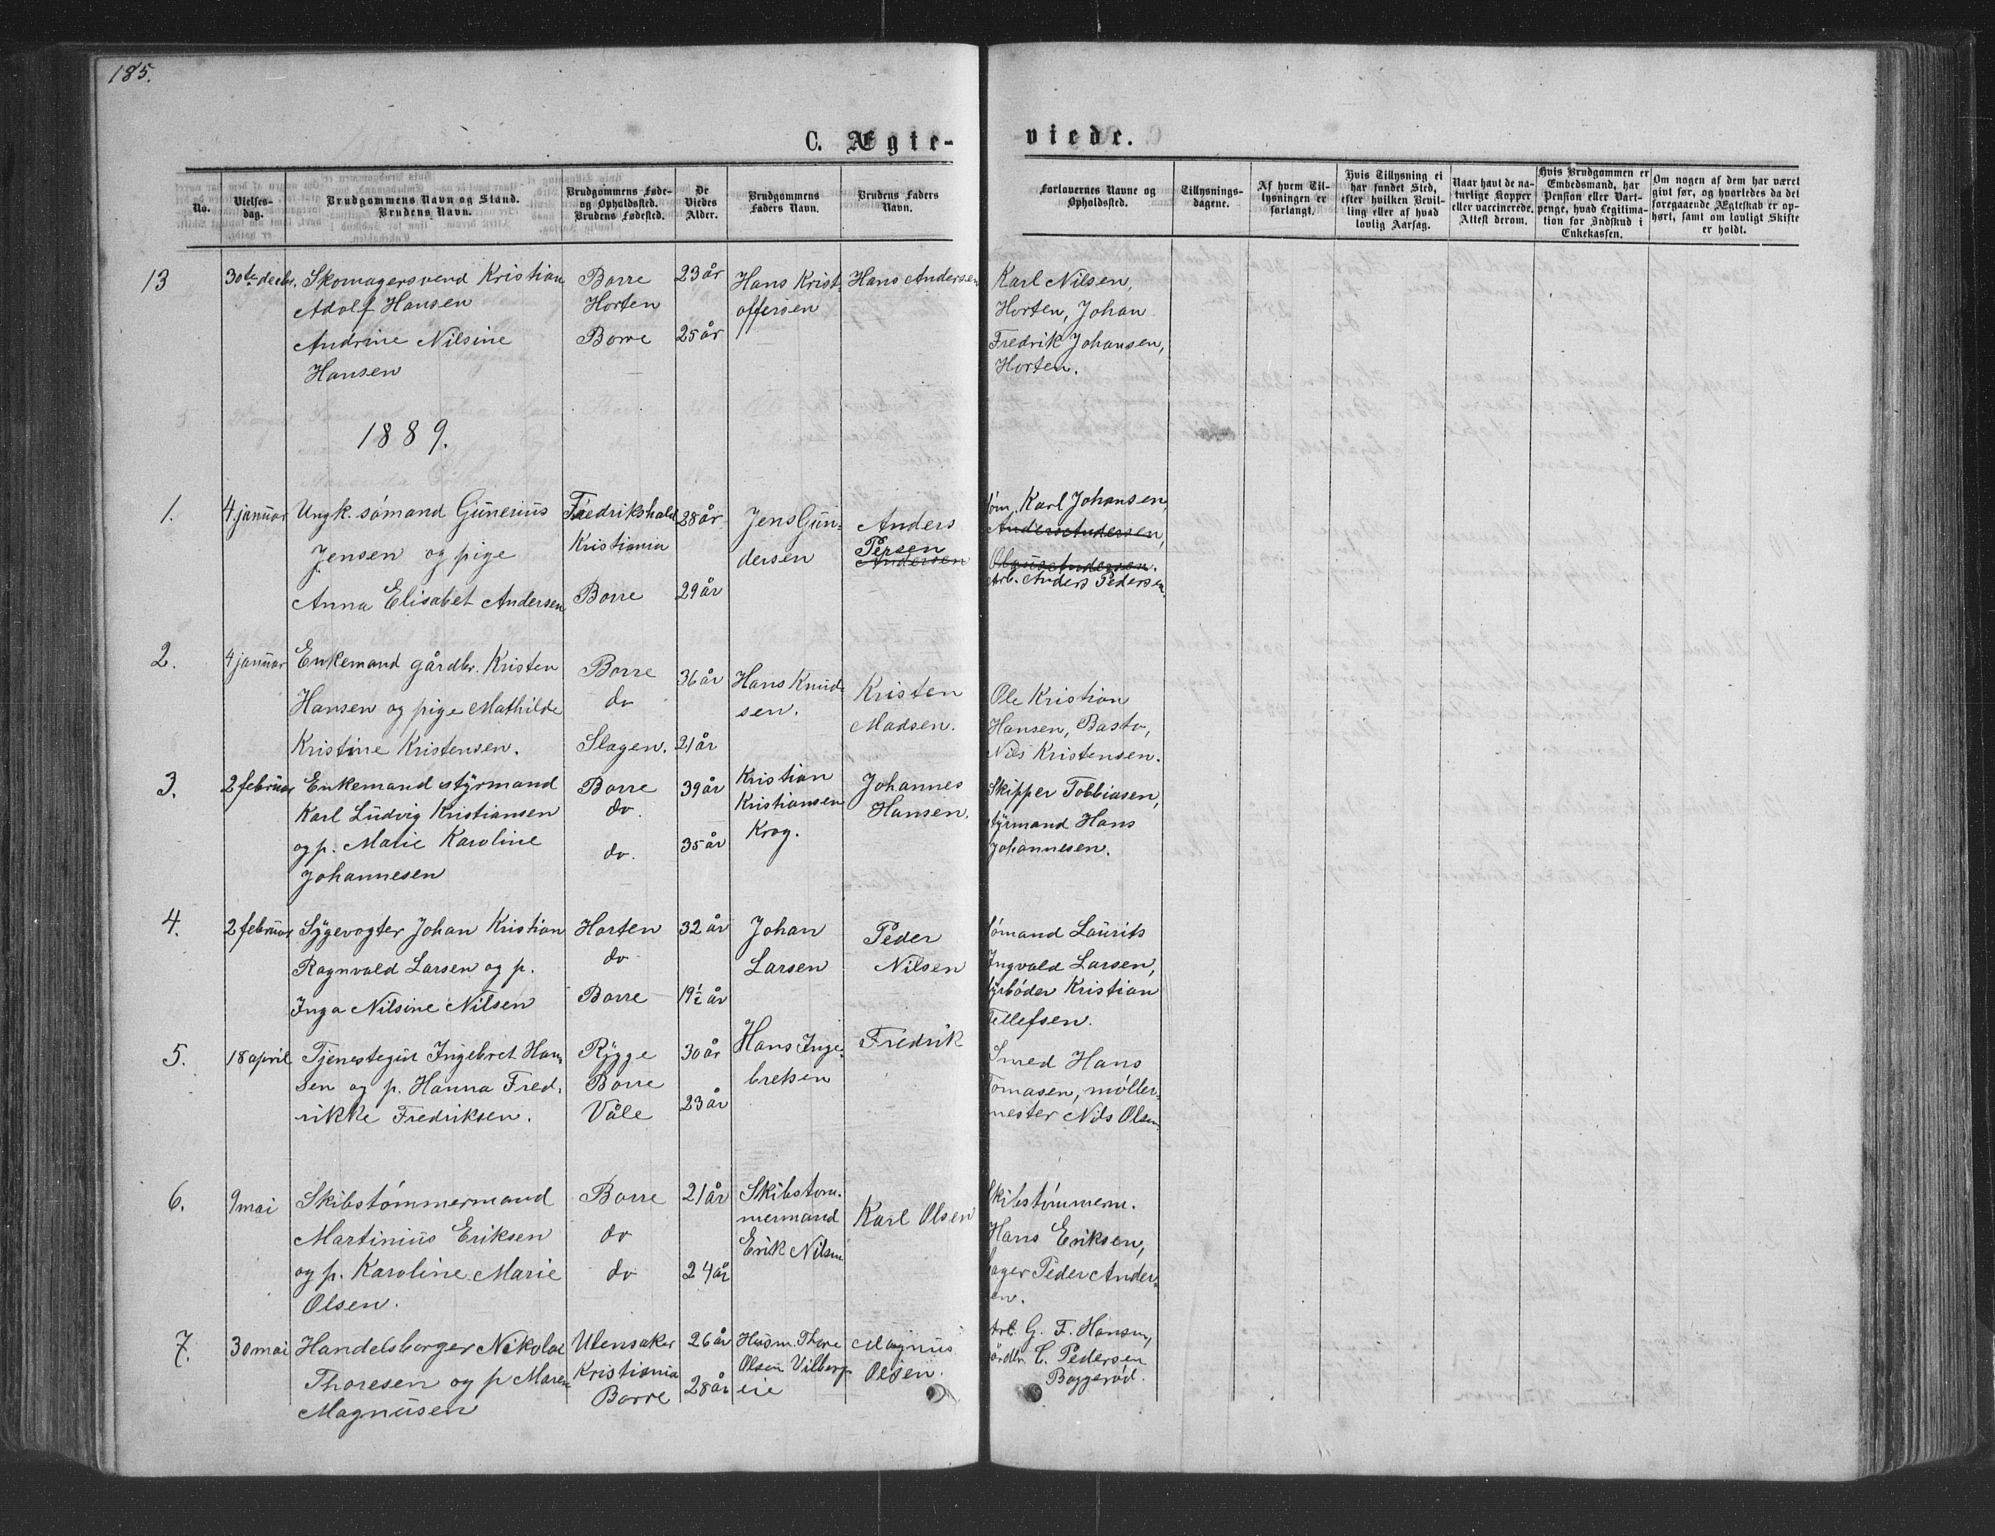 185.
C. Ægte-
viede.
No.
Vielses-
dag.
Brudgommens Navn og Stand.
Brudens Navn.
Brudgommens Føde-
og Opholdssted.
Brudens Fødested.
De
Viedes
Alder.
Brudgommens
Faders Navn.
Brudens Faders
Navn.
Forlovernes Navne og
Opholdssted.
Tillysnings-
dagene.
Af hvem Til-
lysningen er
forlangt.
Hvis Tillysning ei
har fundet Sted,
efter hvilken Bevil-
ling eller af hvad
lovlig Aarsag.
Naar havt de na-
turlige Kopper
eller vaccinerede.
Attest derom.
Hvis Brudgommen er
Embedsmand, har
Pension eller Vart-
penge, hvad Legitima-
tion for Indskud i
Enkekassen.
Om nogen af dem har været
givt før, og hvorledes da det
foregaaende Ægteskab er op-
hørt, samt om lovligt Skifte
er holdt.
13
30te decbr.
Skomagersvend Kristian
Adolf Hansen
Andrine Nilsine
Hansen
Borre
Horten
Borre
23 år
25 år
Hans Krist
offersen
Hans Andersen
Karl Nilsen,
Horten, Johan
Fredrik Johansen,
Horten.
1889.
1.
4 januar
Ungk. sømand Gunerius
Jensen og pige
Anna Elisabet Andersen
Fredrikshald
Kristiania
Borre
28 år
29 år
Jens Gun-
dersen
Anders
Persen
Andersen
Karl Johansen,
Anders Andersen,
Andersen.
Arb. Anders Pedersen.
2.
4 januar
Enkemand gårdbr. Kristen
Hansen og pige Mathilde
Kristine Kristensen.
Borre
do
Slagen.
36 år
21 år
Hans Knud-
sen.
Kristen
Madsen.
Ole Kristian
Hansen, Basto,
Nils Kristensen.
3.
2 februar
Enkemand styrmand
Karl Ludvig Kristiansen
og p. Marie Karoline
Johannesen
Borre
do.
do.
39 år
35 år
Kristian
Kristiansen
Krog.
Johannes
Hansen.
Skipper Tobbiasen,
styrmand Hans
Johannesen.
4.
2 februar
Sygevogter Johan Kristian
Ragnvald Larsen og p.
Inga Nilsine Nilsen
Horten
do
Borre
32 år
19½ år
Johan
Larsen
Peder
Nilsen
sømand Laurits
Ingvald Larsen,
fyrbøder Kristian
Tellefsen.
5.
18 april
Tjenestegut Ingebret Han-
sen og p. Hanna Fred-
rikke Fredriksen.
Rygge
Borre
Våle
30 år
23 år
Hans Inge-
bretsen
Fredrik
Smed Hans
Tomasen, møller-
mester Nils Olsen
6.
9 mai
Skibstømmermand
Martinius Eriksen
og p. Karoline Marie
Olsen.
Borre
do
do
21 år
24 år
Skibstøm-
mermand
Erik Nilsen
Karl Olsen
Skibstømmerm.
Hans Eriksen,
Peder Ander-
sen.
7.
30 mai
Handelsborger Nikolai
Thoresen og p Maren
Magnusen
Ulensaker
Kristiania
Borre
26 år
28 år
Husm. Thore
Olsen Vilberg-
eie
Magnus
Olsen.
Arb. G. F. Hansen,
C. Pedersen
Baggerød.